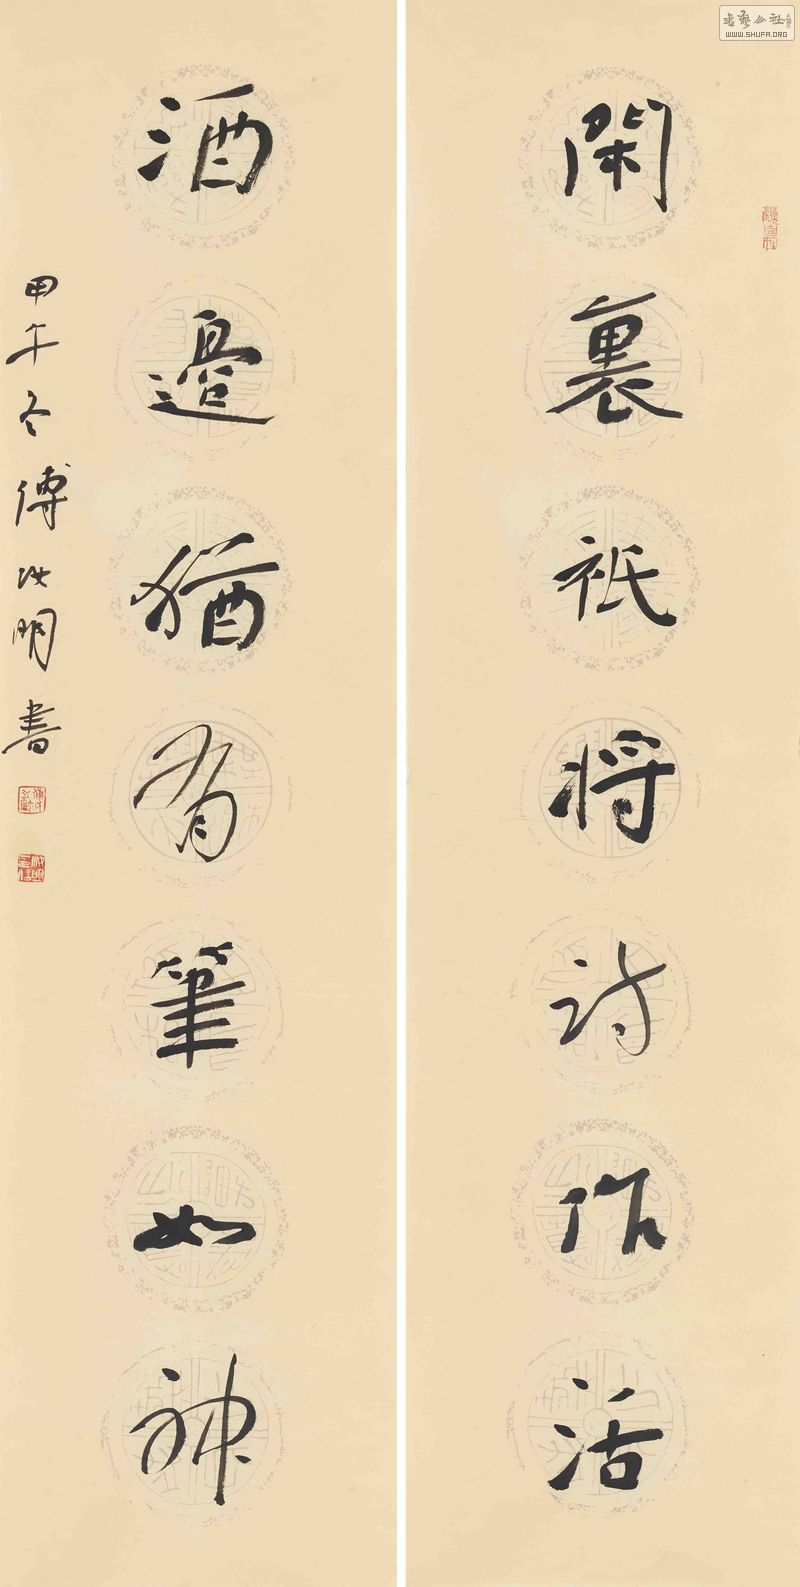 閑裏祇將詩作活
酒邊猶有筆如神
甲午冬傅汝明書
書藝公社
WWW.SHUFA.ORG